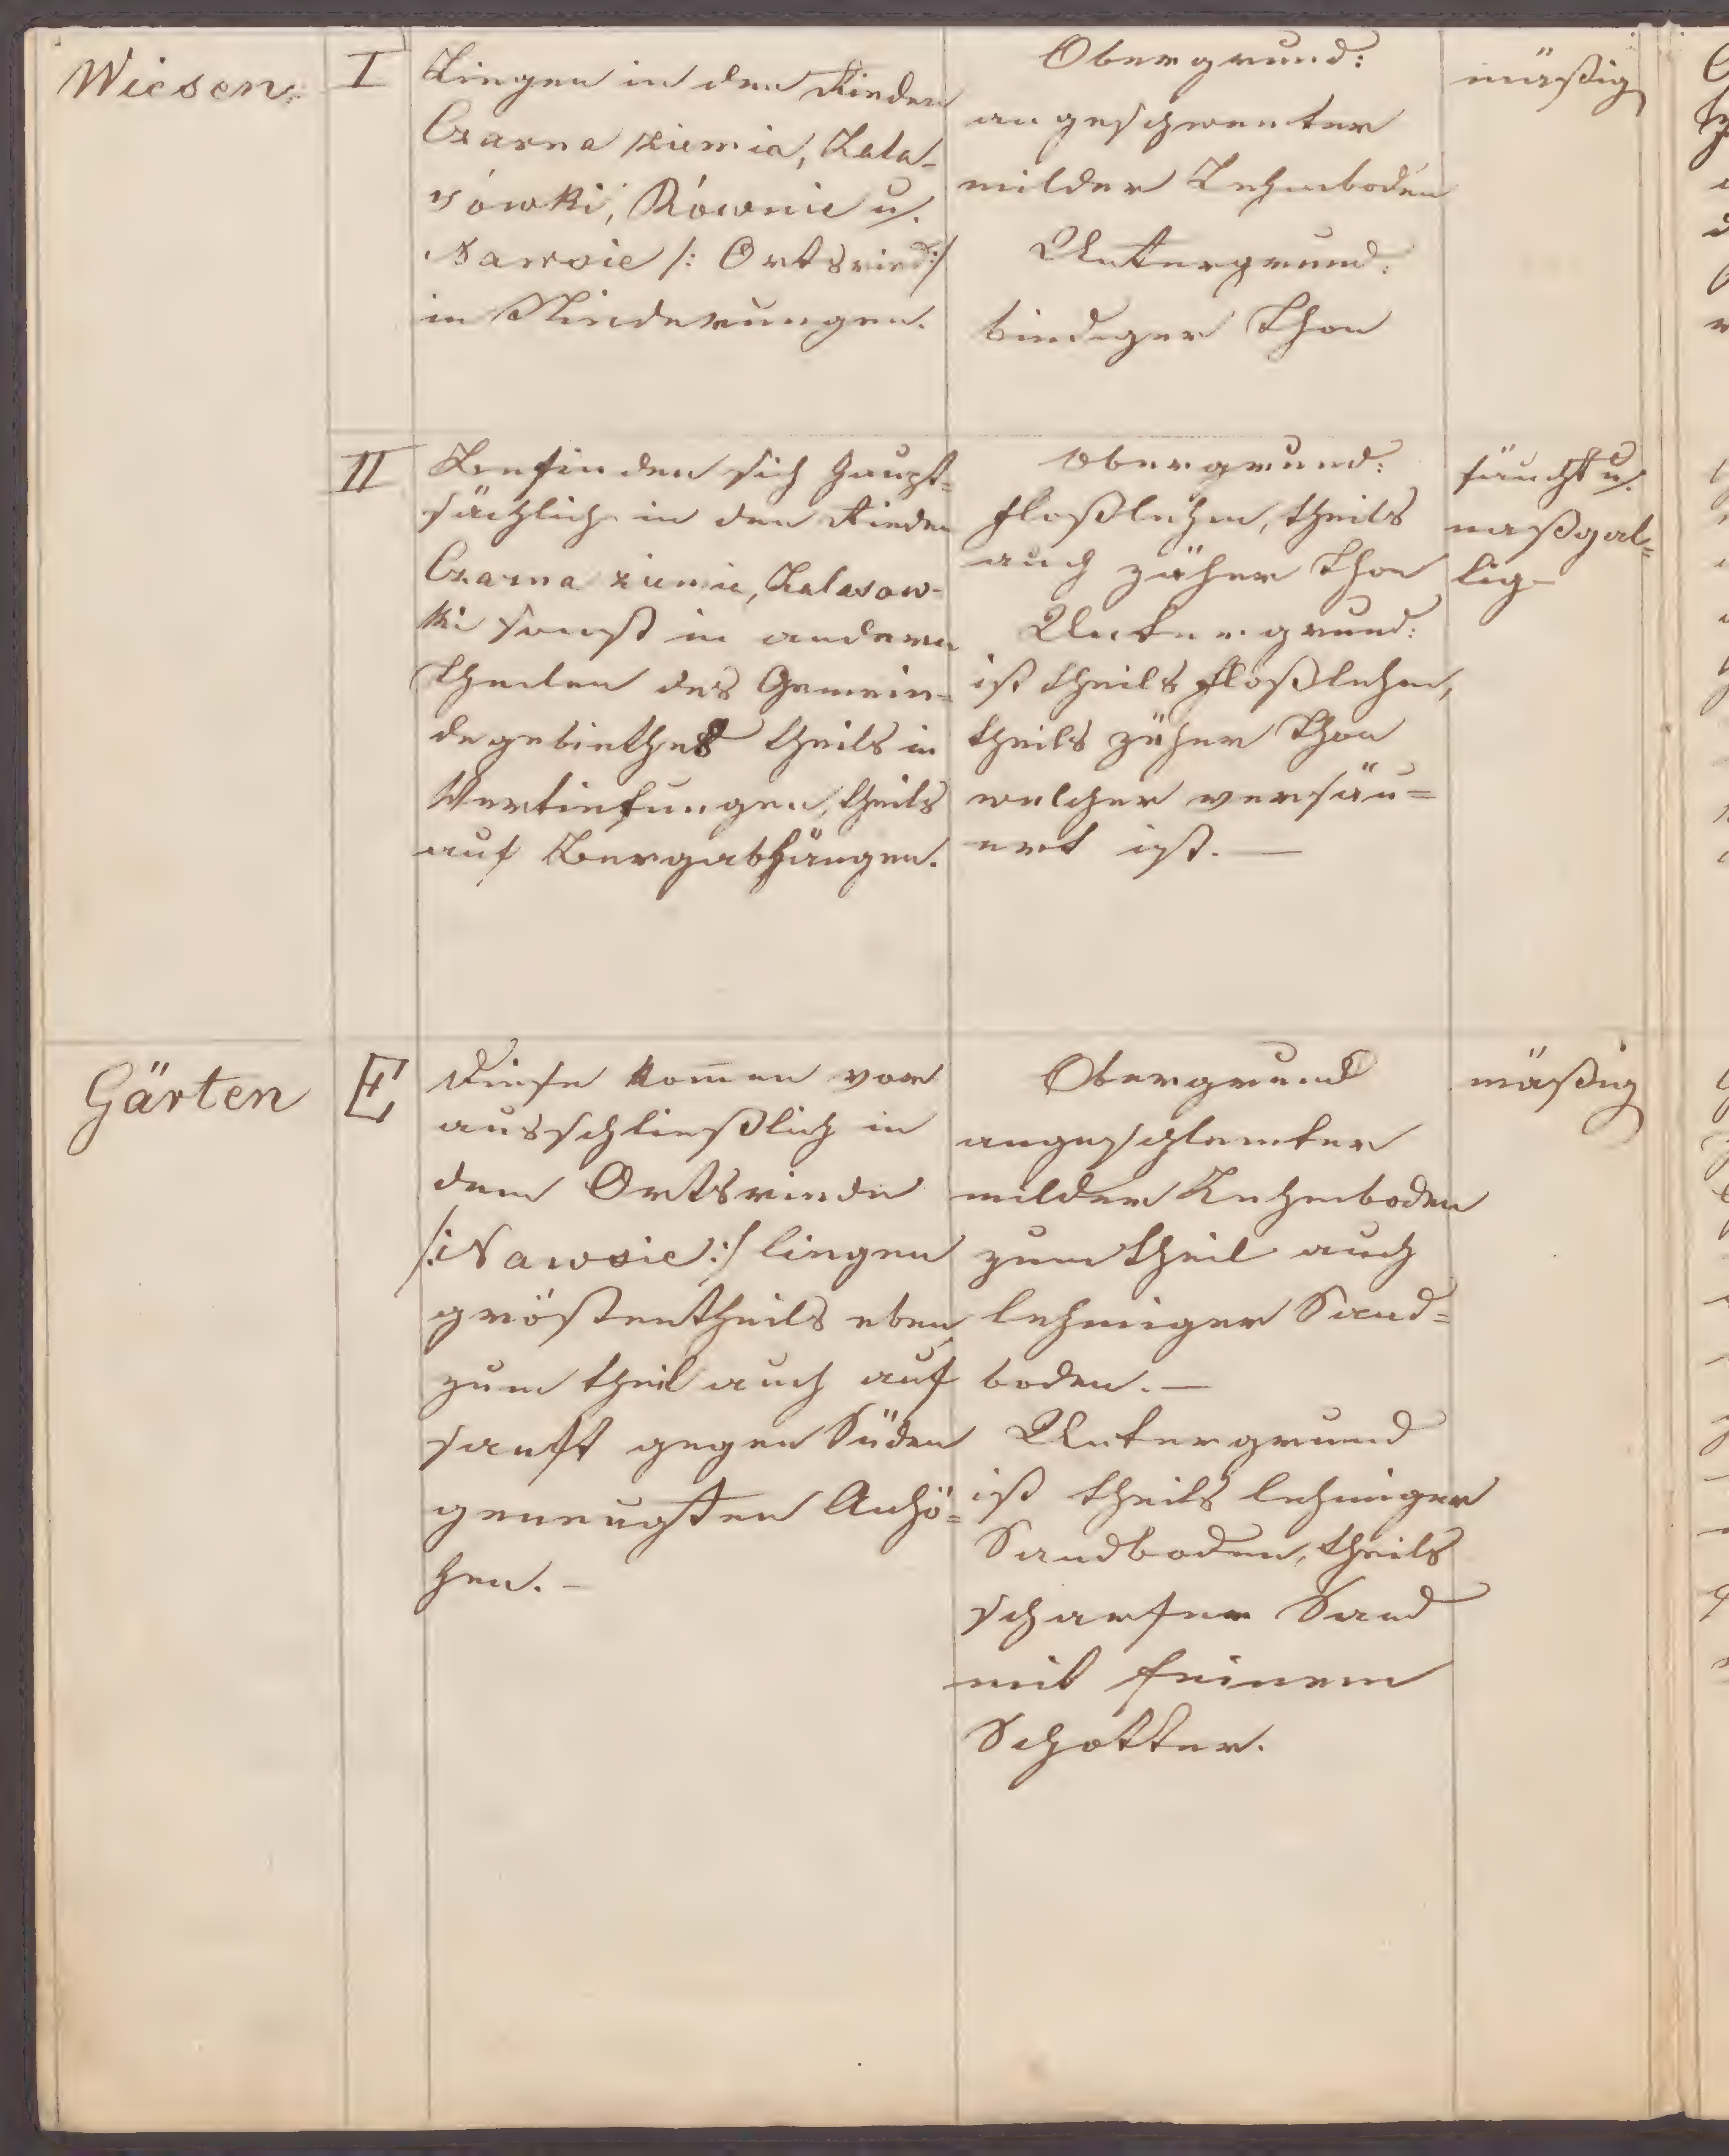 Wiesen:
I
Liegen in den Rieden
Czarna ziemia, Zala-
sówki, Równie u.
Nawsie /: Ortsried :/
in Niederungen.
Obergrund:
angeschwemter
milder Lehmboden
Untergrund:
bindiger Thon
mäßig
II
Befinden sich haupt=
sächlich in den Rieden
Czarna ziemia, Zalasow=
ki sonst in anderen
Theilen des Gemein=
degebiethes theils in
Vertiefungen, theils
auf Bergabhängen.
Obergrund:
Floßlehm, theils
auch zäher Thon
Untergrund:
ist theils Floßlehm,
theils zäher Thon
welcher versäu=
ert ist. —
feucht u.
naßgal=
lig –
Gärten
E
Diese kom̄en vor
ausschließlich in
dem Ortsriede
/: Nawsie :/ liegen
größtentheils eben
zum theil auch auf
sanft gegen Süden
geneugten Anhö=
hen. –
Obergrund
angeschlemter
milder Lehmboden
zum theil auch
lehmiger Sand=
boden. —
Untergrund
ist theils lehmiger
Sandboden, theils
scharfer Sand
mit feinem
Schotter.
mäßig